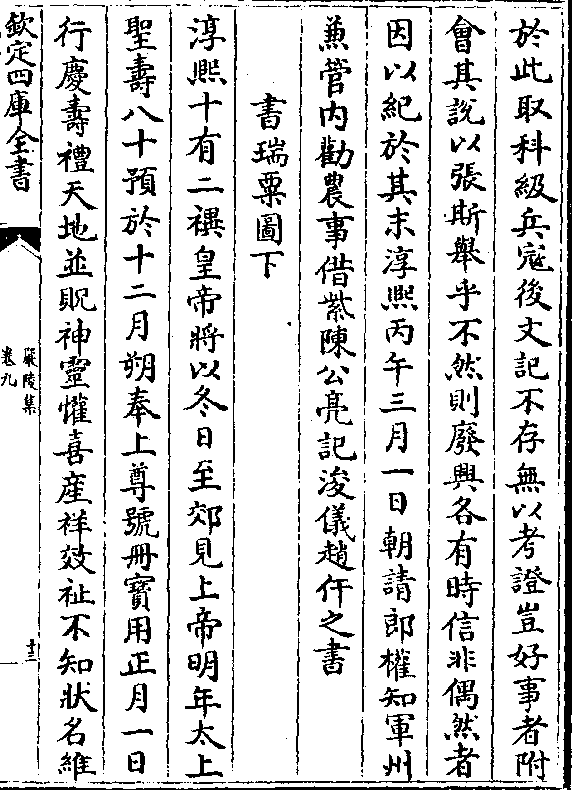 於此取科級兵寇後文記不存無以考證豈好事者附
會其說以張斯舉乎不然則廢興各有時信非偶然者
因以紀於其末淳熙丙午三月一日朝請郎權知軍州
兼管内勸農事借紫陳公亮記浚儀趙仵之書
書瑞粟圖下
淳熙十有二禩皇帝將以冬日至郊見上帝明年太上
聖壽八十預於十二月朔奉上尊號册寳用正月一日
行慶壽禮天地並貺神靈懽喜産祥效祉不知狀名維
欽定四庫全書
嚴陵集
卷九
十三